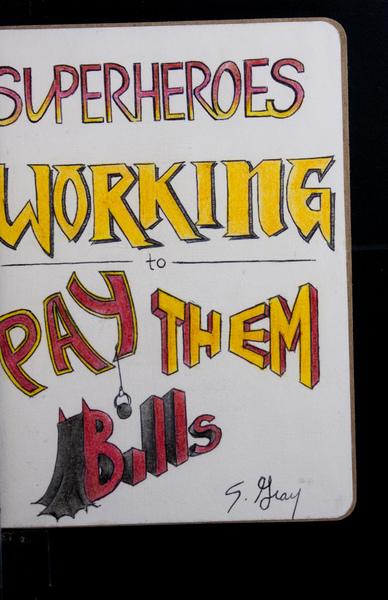 SUPERHEROES
WORKING
to
PAY THEM
Bills
S. Gray